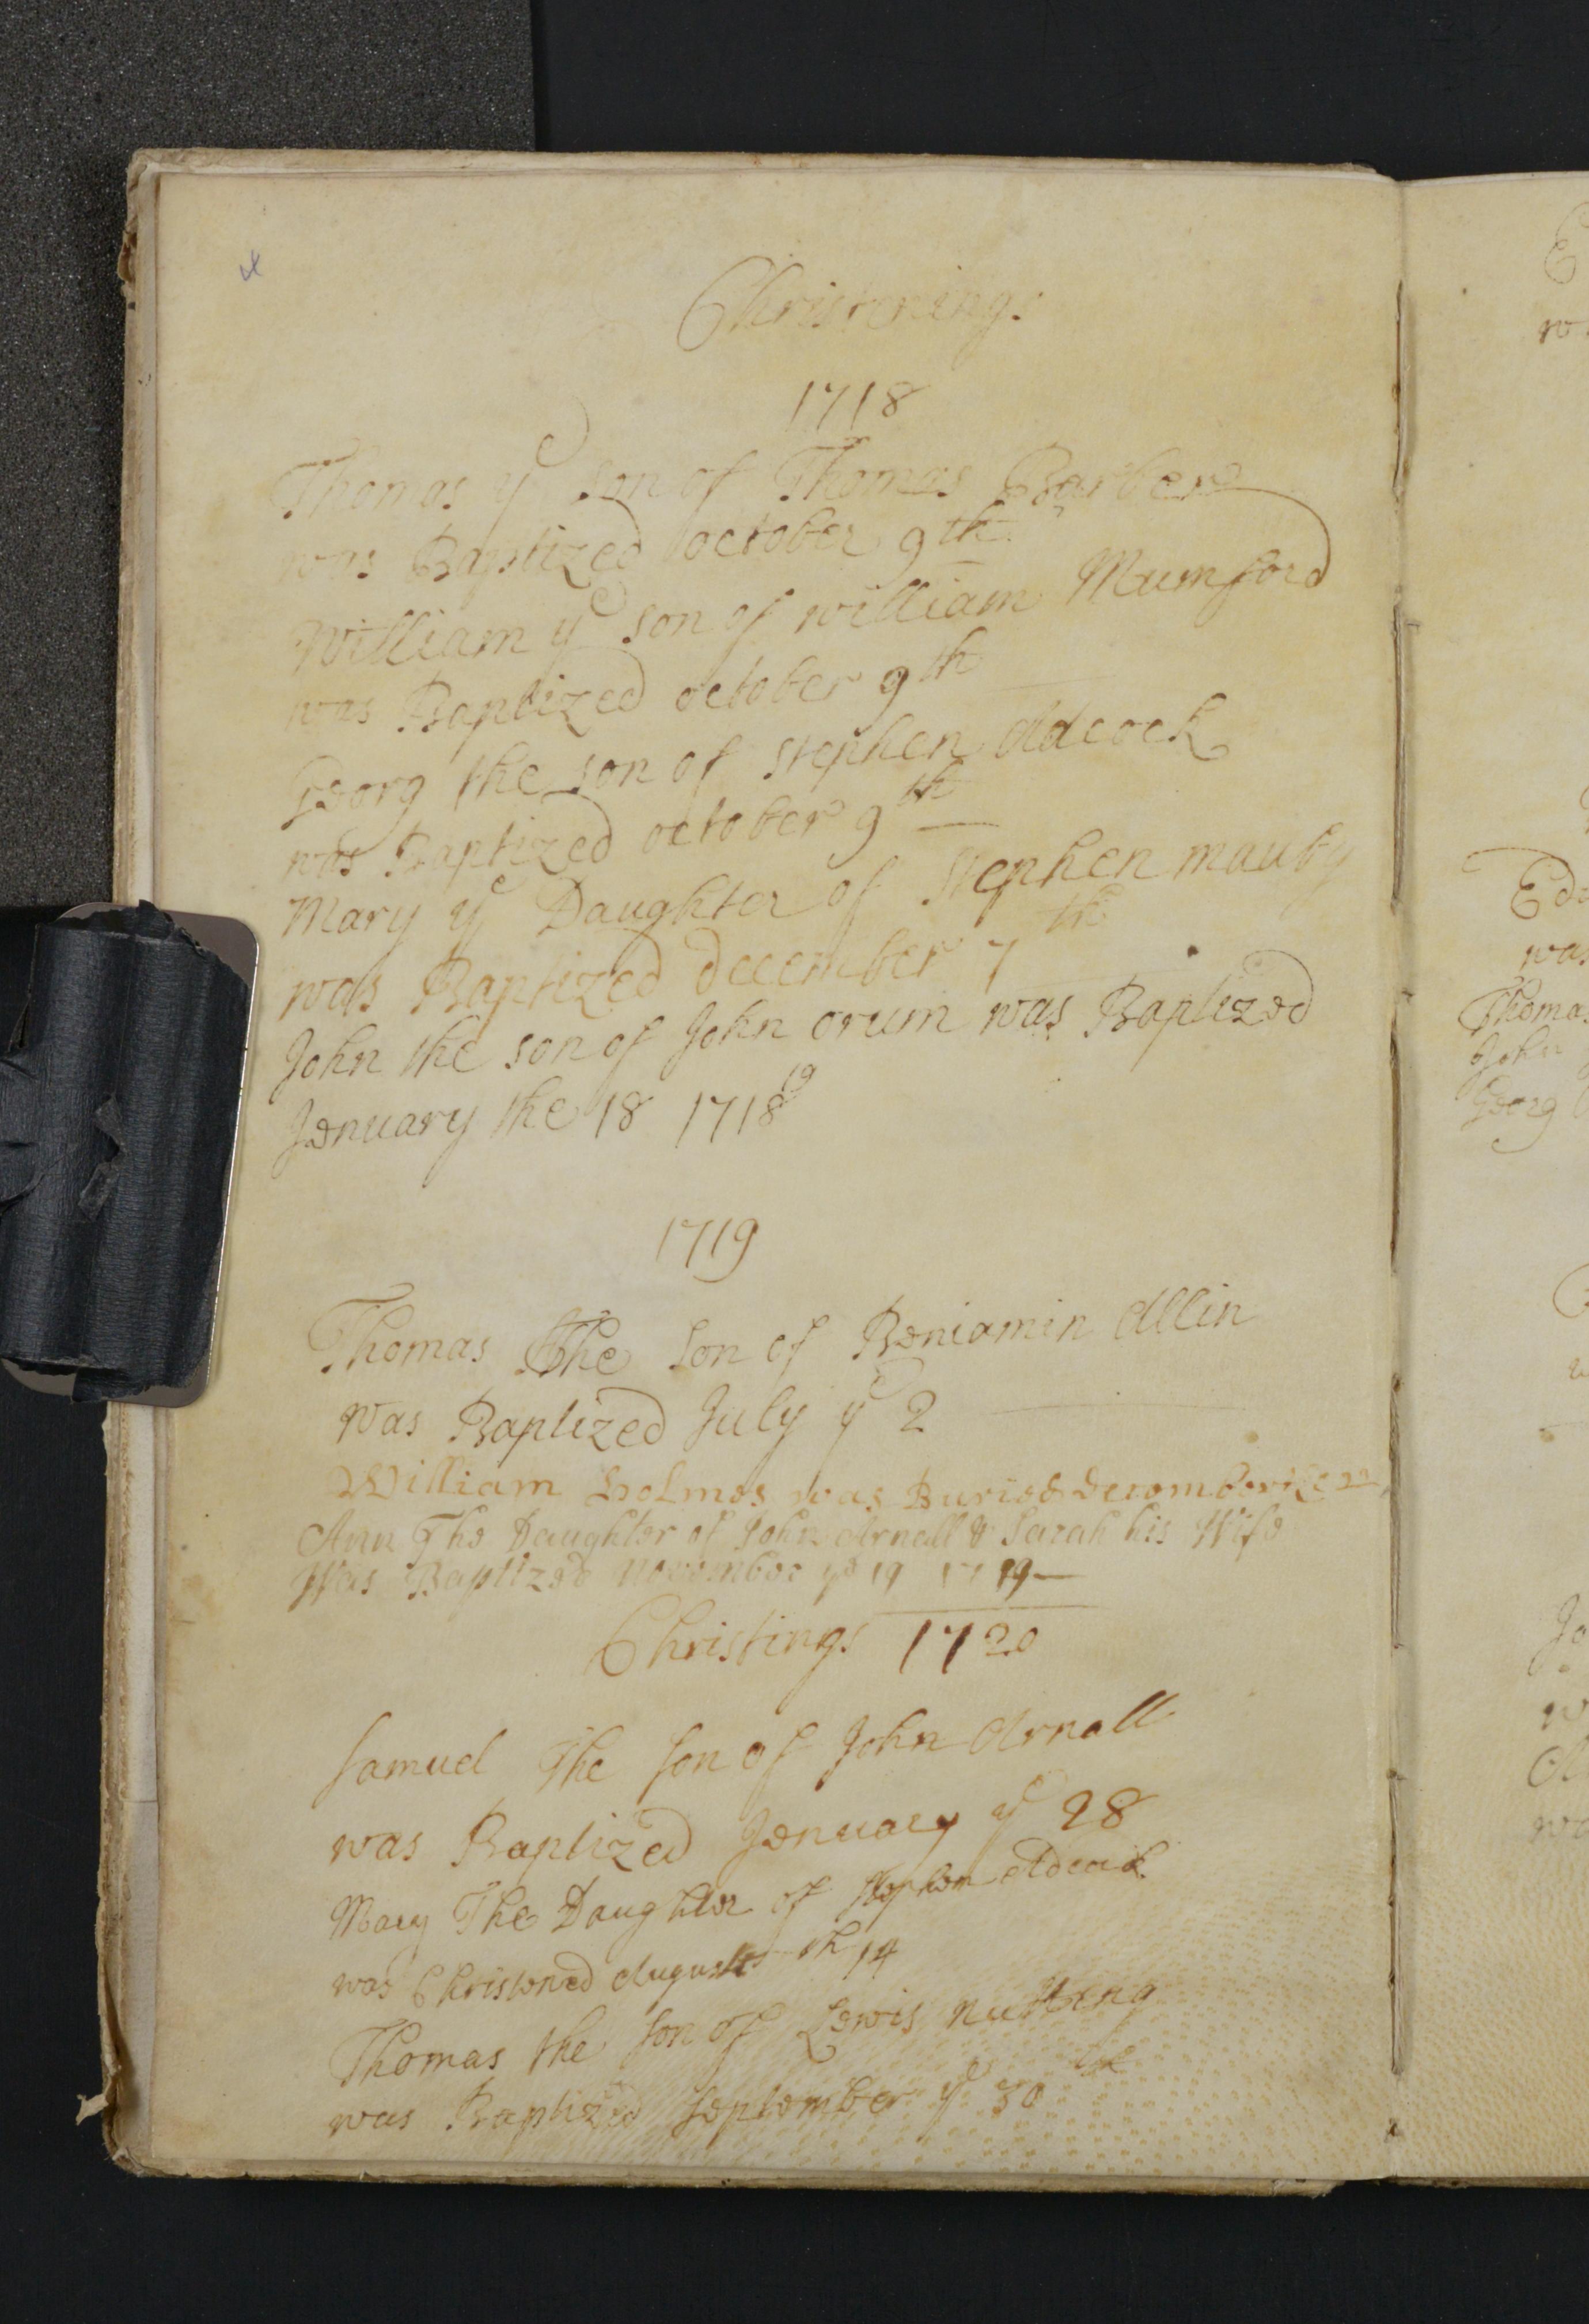 Christenings
1718
Thomas ye son of Thomas Barber
was Baptized october 9th
William ye son of william Mumford
was Baptized october 9th
Georg the son of Stephen Adcock
was Baptized october 9th
Mary ye Daughter of Stephen mauby
was Baptized december 7th
John the son of John orum was Baptized
Jenuary the 18 1718/19
1719
Thomas The Son of Beniamin Allin
was Baptized July ye 2
William Holmes was Buried December the 22
Ann The Daughter of John Arnall & Sarah his Wife
Was Baptized November ye 19 1719
Christings 1720
Samuel The Son of John Arnall
was Baptized Jenuary ye 28
Mary The Daughter of Stephen Adcock
was Christened August th 14
Thomas the Son of Lewis Nutting
was Baptized September ye 30th
E
w
Edw
was
Thomas
John
Georg
Jo
w
A
wa